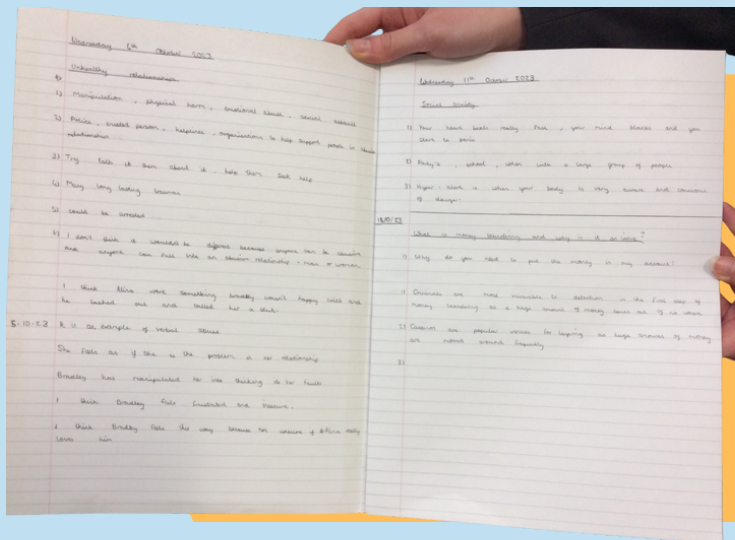 Wednesday 4th October 2023
Unhealthy relationships
1) Manipulation, physical harm, emotional abuse, sexual assault
2) Police, trusted person, helplines, organisations to help support people in abusive
relationships
3) Try talk it them about it, help them seek help
4) Many long lasting
5) could be arrested
6) I don't think it would be different because anyone can be abusive
and anyone can fall into an abusive relationship - man or woman
I think wore something Bradley wasn't happy with and
he lashed out and called her a slut
5-10-23 It is an example of verbal abuse
She feels as if she is the problem in her relationship
Bradley has manipulated her into thinking its her fault
I think Bradley feels frustrated and insecure.
I think Bradley feels this way because he's unsure if really
loves him
Wednesday 11th October 2023
Social anxiety
1) Your heart beats really fast, your mind blanks and you
start to panic
2) Party's, school, when with a large group of people
3) Hyper-alert is when your body is very aware and conscious
of danger.
What is money laundering and why is it an issue?
1) Why do you need to put the money in my account?
1) Criminals are most vulnerable to detection in the first step of
money laundering as a large amount of money comes out of no where
2) Casinos are popular venues for layering as large amounts of money
are moved around frequently
3)